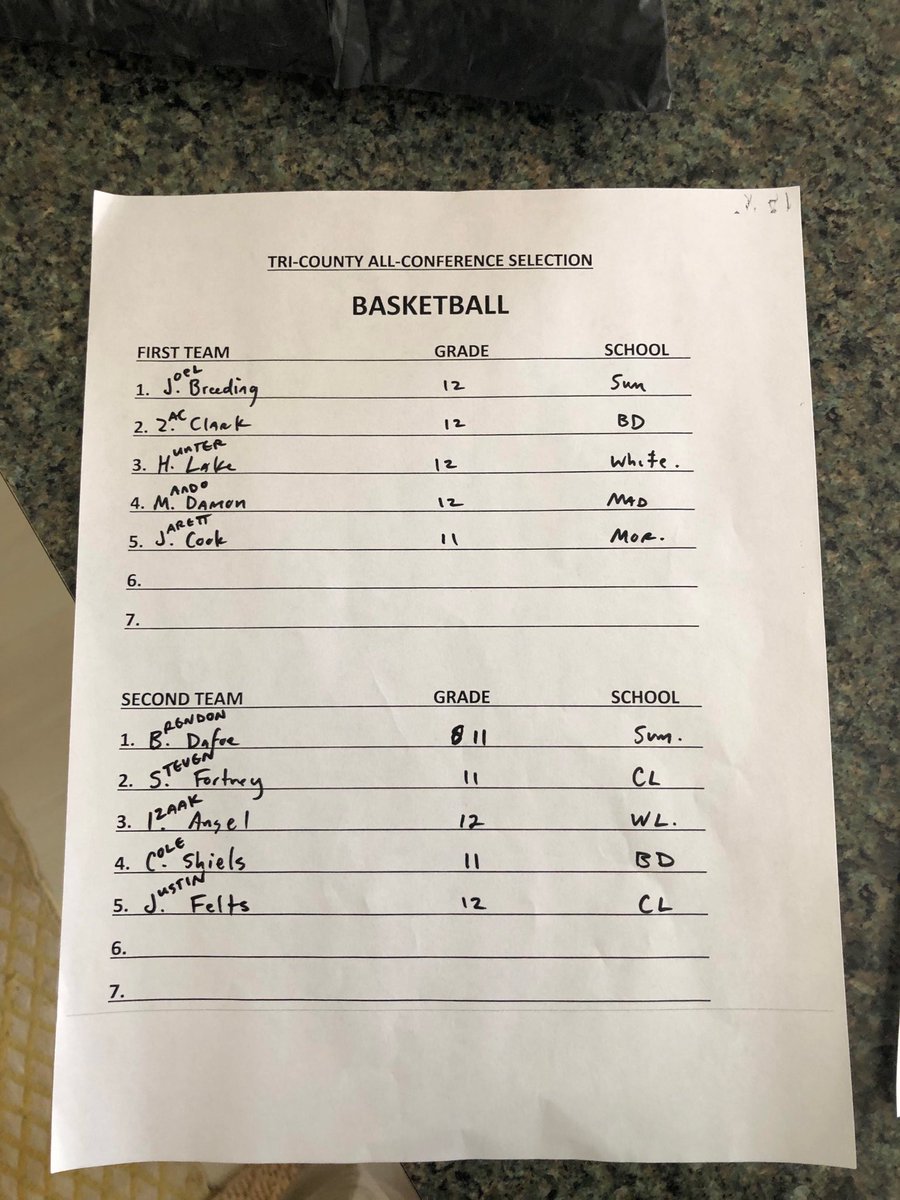 TRI-COUNTY ALL-CONFERENCE SELECTION
BASKETBALL
FIRST TEAM GRADE SCHOOL
1. JOEL Breeding 12 Sum
2. ZAC Clark 12 BD
3. HUNTER Lake 12 White.
4. MANDO DAMON 12 MAD
5. JARETT Cook 11 MOR.
6.
7.
SECOND TEAM GRADE SCHOOL
1. BRENDON Dafoe 11 Sum.
2. STEVEN Fortney 11 CL
3. IZAAK Angel 12 WL.
4. COLE Shiels 11 BD
5. JUSTIN Felts 12 CL
6.
7.